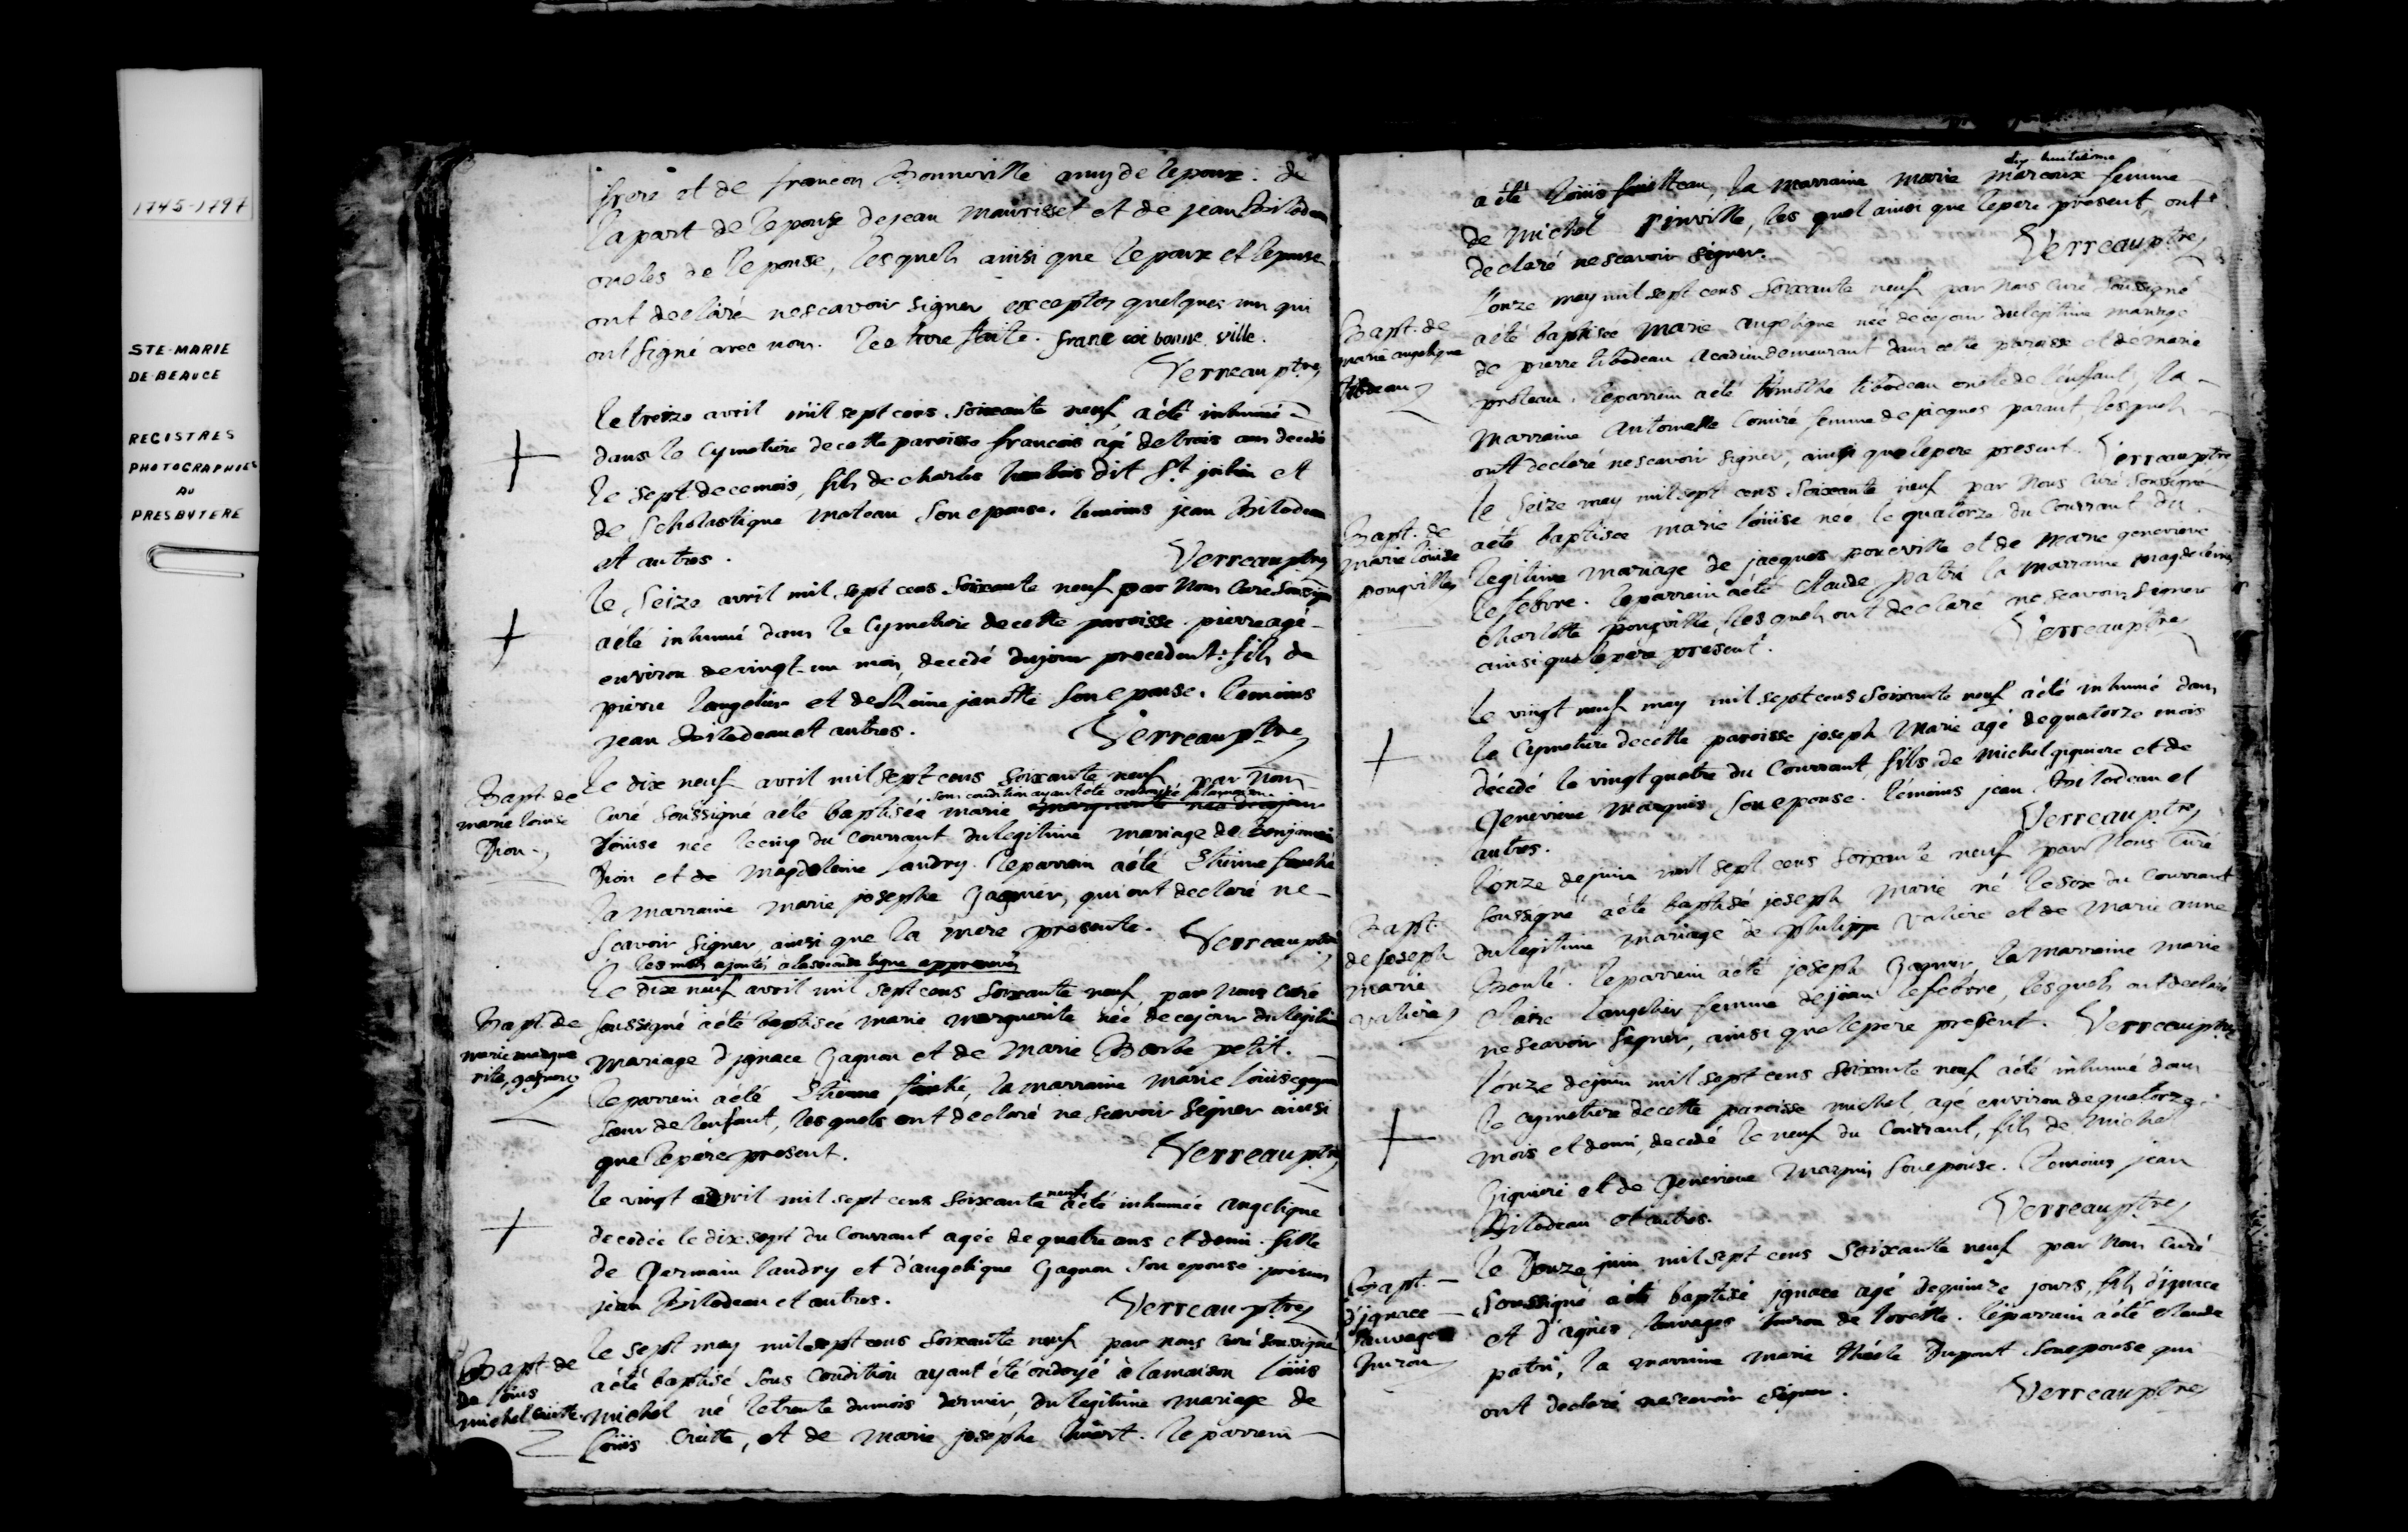 1745-1797
STE-MARIE
DE-BEAUCE
REGISTRES
PHOTOGRAPHIES
AU
PRESBYTERE
frere et de francois Bonneville amy de lepoux. de
la part de lepouse de jean maurisset et de jean Bilodeau
oncles de lepouse, lesquels ainsi que lepoux et lepouse
ont declaré ne scavoir signer exceptés quelques uns qui
ont signé avec nous. lecture faite. franc coi bonne ville.
Verreau ptre
le treize avril mil sept cens soixante neuf a été inhumé
dans le Cymetiere de cette paroisse francois agé de trois ans decedé
le sept de ce mois, fils de charles dit St. julien et
de Scholastique moteau son epouse. temoins jean Bilodeau
et autres.
Verreau ptre
le Seize avril mil sept cens soixante neuf par Nous Curé Soussigné
a été inhumé dans le Cymetiere de cette paroisse pierre agé
environ de vingt-un mois, decedé du jour precedent: fils de
pierre langelier et de son epouse. temoins
jean Bilodeau et autres.
Verreau ptre
Bapt. de
marie louise
Dion
le dix neuf avril mil sept cens soixante neuf, par Nous
sous condition ayant été ondoyée a la maison
Curé soussigné a été baptisée marie marguerite née de ce jour
louise née le cinq du Courrant du legitime mariage de Benjamin
Dion et de Magdeleine landry. le parrein a été Etienne
la marraine marie josephe Gagnier, qui ont declaré ne
scavoir signer, ainsi que la mere presente.
Verreau ptre
les mots ajoutés a la seconde ligne approuvés
Bapt. de
marie margue
rite, gagnon
le dix neuf avril mil sept cens soixante neuf, par nous Curé
soussigné a été baptisée marie marguerite née de ce jour du legitime
mariage d'ignace Gagnon et de Marie Barbe petit.
le parrein a été Etienne la marraine Marie louise gagnon
soeur de lenfant, lesquels ont declaré ne scavoir signer ainsi
que le père present.
Verreau ptre
le vingt avril mil sept cens soixante neuf a été inhumée angelique
decedée le dix sept du Courrant agée de quatre ans et demi. fille
de Germain landry et d'angelique Gagnon son epouse. présens
jean Bilodeau et autres.
Verreau ptre
Bapt. de
de loüis
michel
le sept may mil sept cens soixante neuf par nous Curé soussigné
a été baptisé sous Condition ayant été ondoyé à la maison loüis
michel né le trente du mois dernier, du legitime mariage de
loüis et de marie josephe huart. le parrein
dix-huitième
a été loüis la marraine marie marcoux femme
de Michel les quel ainsi que le pere présent, ont
declaré ne scavoir signer.
Verreau ptre
Bapt. de
marie angelique
tibodeau
l'onze may mil sept cens soixante neuf par nous Curé Soussigné
a été baptisée Marie angelique née de ce jour du legitime mariage
de pierre tibodeau Acadien demeurant dans cette paroisse et de marie
le parrein a été timothé tibodeau oncle de l'enfant, la
marraine Antoinette femme de jacques parant, lesquels
ont declaré ne scavoir signer, ainsi que le pere présent.
Verreau ptre
Bapt. de
marie loüise
le Seize may mil sept cens Soixante neuf par Nous Curé Soussigné
a été baptisée marie loüise née le quatorze du Courrant du
legitime mariage de jacques et de Marie genevieve
lefebvre. le parrein a été Claude patri la marraine magdeleine
charlotte lesquels ont declaré ne scavoir signer
ainsi que le pere present.
Verreau ptre
le vingt neuf may mil sept cens soixante neuf a été inhumé dans
le Cymetiere de cette paroisse joseph Marie agé de quatorze mois
décédé le vingt quatre du Courrant, fils de Michel giguiere et de
Genevieve Marquis son epouse. témoins jean Bilodeau et
autres.
Verreau ptre
Bapt.
de joseph
marie
valiere
l'onze de juin mil sept cens soixante neuf par Nous Curé
soussigné a été baptisé joseph Marie né le six du Courrant
du legitime Mariage de philippe valiere et de Marie anne
le parrein a été joseph Gagnier la marraine marie
claire langelier femme de jean lefebvre, lesquels ont declaré
ne scavoir signer, ainsi que le pere present.
Verreau ptre
l'onze de juin mil sept cens soixante neuf a été inhumé dans
le cymetiere de cette paroisse michel, agé environ de quatorze
mois et demi, decedé le neuf du Courrant, fils de michel
Giguiere et de Genevieve Marquis son epouse. temoins jean
Bilodeau et autres.
Verreau ptre
Bapt.
d'ignace
sauvage
huron
le Douze juin mil sept cens soixante neuf par nous Curé
Soussigné a été baptisé ignace agé de quinze jours, fils d'ignace
et d'agnes sauvages huron de lorette. le parrein a été Claude
patri, la marraine Marie Dupont son epouse qui
ont declaré ne scavoir signer.
Verreau ptre